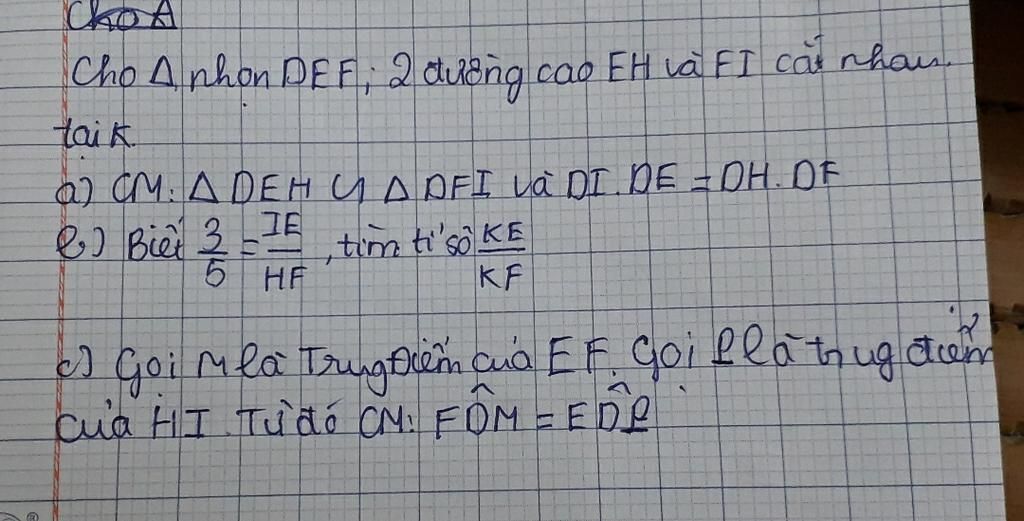 Cho Δ
Cho Δ nhọn DEF; 2 đường cao EH và FI cắt nhau
tại K.
a) CM: Δ DEH ∽ Δ DFI và DI.DE = DH.DF
b) Biết 3/5 = IE/HF, tìm tỉ số KE/KF
c) Gọi M là Trung điểm của EF. Gọi P là trug điểm
của HI. Từ đó CM: FD̂M = ED̂P